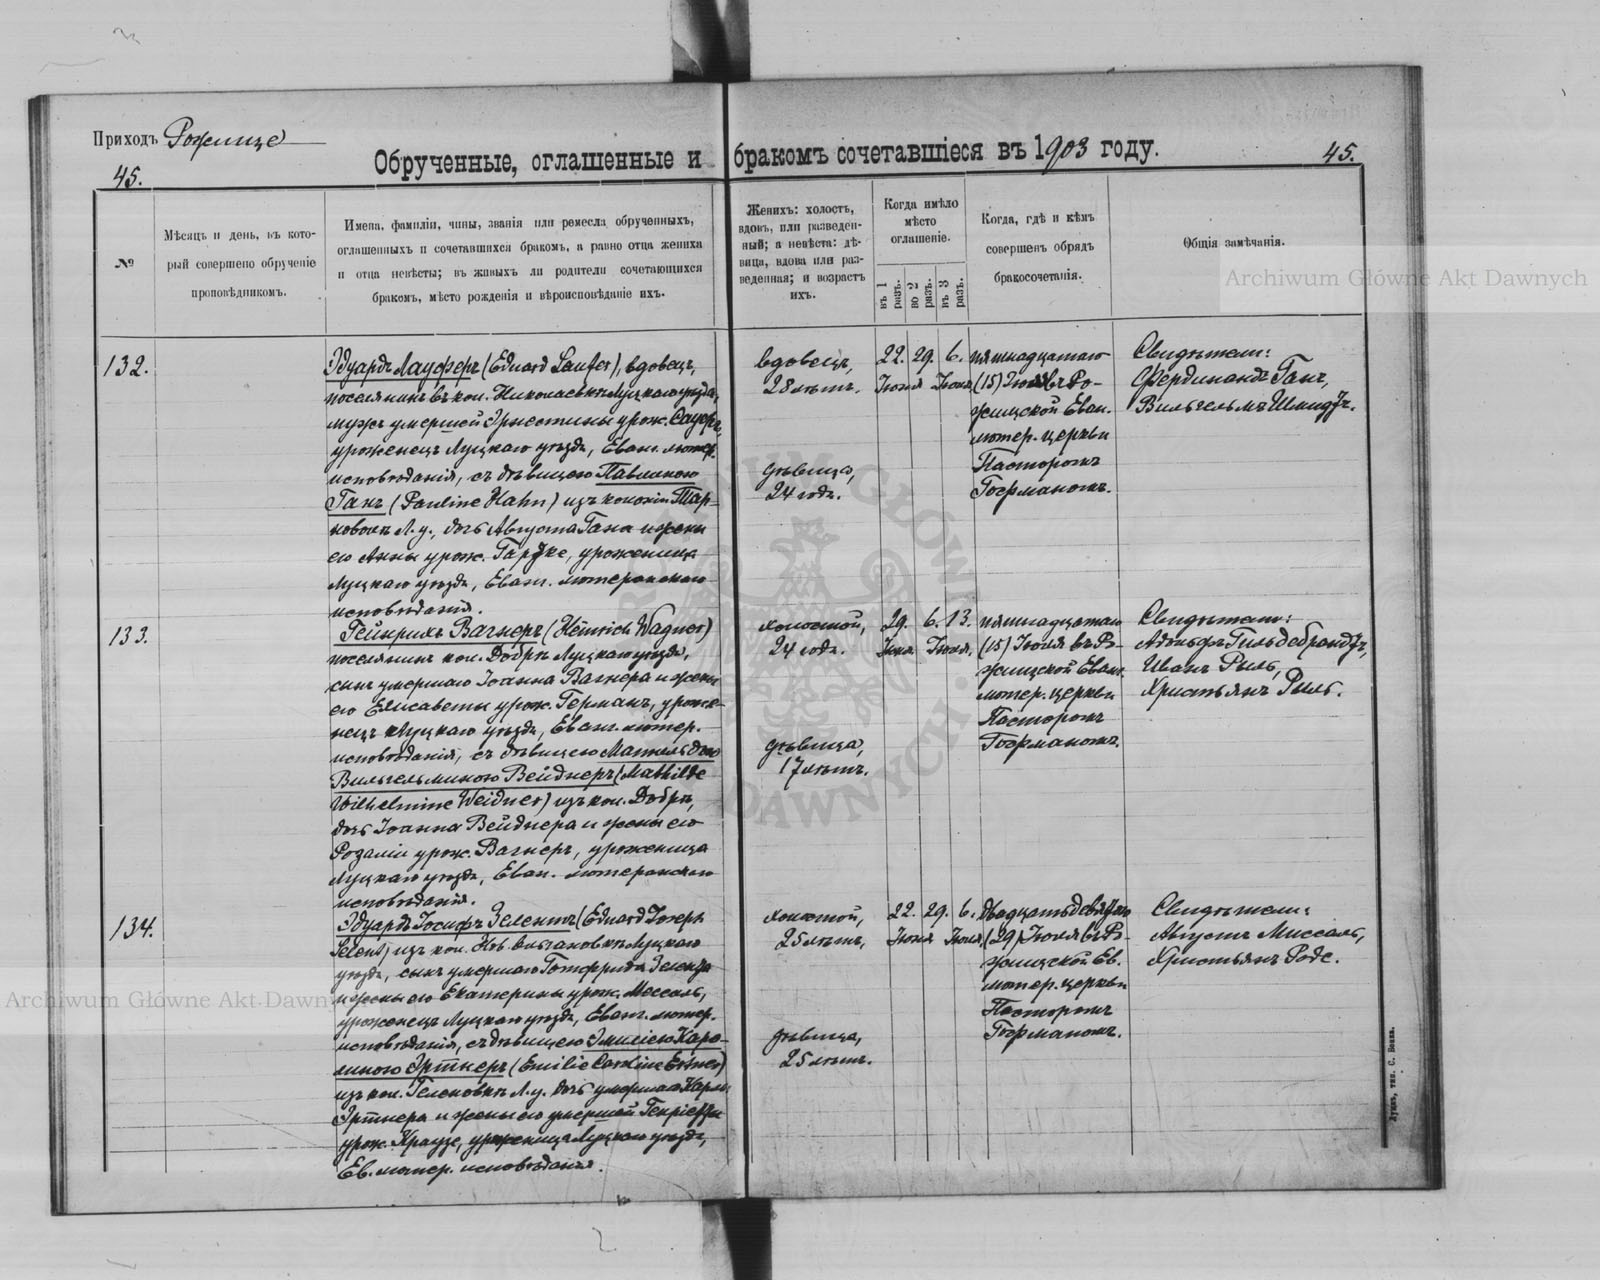 Приходъ Рожище
45.
Обрученные, оглашенные и бракомъ сочетавшіеся въ 1903 году.
45.
№
Мѣсяцъ и день, въ кото-
рый совершено обрученіе
проповѣдникомъ.
Имена, фамиліи, чины, званія или ремесла обрученныхъ,
оглашенныхъ и сочетавшихся бракомъ, а равно отца жениха
и отца невѣсты; въ живыхъ ли родители сочетающихся
бракомъ, мѣсто рожденія и вѣроисповѣданіе ихъ.
Женихъ: холостъ,
вдовъ, или разведен-
ный; а невѣста: дѣ-
вица, вдова или раз-
веденная; и возрастъ
ихъ.
Когда имѣло
мѣсто
оглашеніе.
въ 1
разъ.
во 2
разъ.
въ 3
разъ.
Когда, гдѣ и кѣмъ
совершенъ обрядъ
бракосочетанія.
Общія замѣчанія.
Archiwum Główne Akt Dawnych
132.
Эдуардъ Лауферъ (Eduard Laufer), вдовецъ,
поселянинъ въ кол. Николаевкѣ Луцкаго уѣзда,
мужъ умершей Эрнестины урож.
уроженецъ Луцкаго уѣзда, Еванг. лютер.
исповѣданія, съ дѣвицею Павлиною
Ганъ (Pauline Hahn) изъ колоніи Тар-
новокъ Л. у., дочь Августа Гана и жены
его Анны урож. Гартке, уроженица
Луцкаго уѣзда, Еванг. лютеранскаго
исповѣданія.
вдовецъ,
28 лѣтъ.
дѣвица,
24 года.
22. 29. 6.
Іюня Іюля
пятнадцатаго
(15) Іюля въ Ро-
жищской Еван.
лютер. церкви
Пасторомъ
Гофманомъ.
Свидѣтели:
Фердинандъ Ганъ,
Вильгельмъ Шмидтъ.
133.
Гейнрихъ Вагнеръ (Heinrich Wagner)
поселянинъ кол. Добрѣ Луцкаго уѣзда,
сынъ умершаго Іоанна Вагнера и жены
его Елисаветы урож. Германъ, уроже-
нецъ Луцкаго уѣзда, Еванг. лютер.
исповѣданія, съ дѣвицею Матильдою
Вильгельминою Вейднеръ (Mathilde
Wilhelmine Weidner) изъ кол. Добрѣ,
дочь Іоанна Вейднера и жены его
Розаліи урож. Вагнеръ, уроженица
Луцкаго уѣзда, Еван. лютеранскаго
исповѣданія.
холостой,
24 года.
дѣвица,
17 лѣтъ.
29. 6. 13.
Іюня Іюля.
пятнадцатаго
(15) Іюля въ Ро-
жищской Еванг.
лютер. церкви
Пасторомъ
Гофманомъ.
Свидѣтели:
Адольфъ Гильдебрандтъ,
Иванъ Рыль,
Христьянъ Рыль.
134.
Эдуардъ Іосифъ Зелентъ (Eduard Joseph
Selent) изъ кол. Луцкаго
уѣзда, сынъ умершаго Готфрида Зелента
и жены его Екатерины урож. Мессаль,
уроженецъ Луцкаго уѣзда, Еванг. лютер.
исповѣданія, съ дѣвицею Эмиліею Каро-
линою Эртнеръ (Emilie Caroline Ertner)
изъ кол. Геленовкѣ Л. у. дочь умершаго Карла
Эртнера и жены его умершей Генріетты
урож. Краузе, уроженица Луцкаго уѣзда,
Ев. лютер. исповѣданія.
холостой,
25 лѣтъ,
дѣвица,
25 лѣтъ.
22. 29. 6.
Іюня Іюля
двадцать девятаго
(29) Іюля въ Ро-
жищской Ев.
лютер. церкви
Пасторомъ
Гофманомъ.
Свидѣтели:
Августъ Миссаль,
Христьянъ Роде.
Archiwum Główne Akt Dawnych